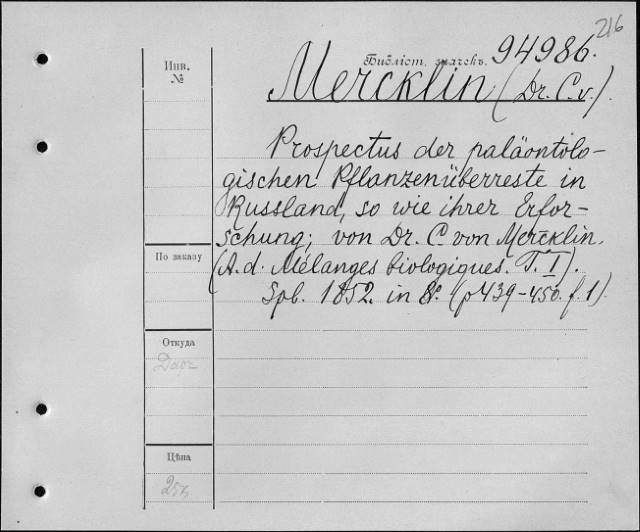 216
Библіот. значекъ. 94986.
Инв.
№
Mercklin (Dr. C. v.).
Prospectus der paläontolo-
gischen Pflanzenüberreste in
Russland, so wie ihrer Erfor-
schung; von Dr. C. von Mercklin.
По заказу
(A. d. Mélanges biologiques. T. I).
Spb. 1852. in 8º. (p 439-450. f. 1).
Откуда
Даръ
Цѣна
25к